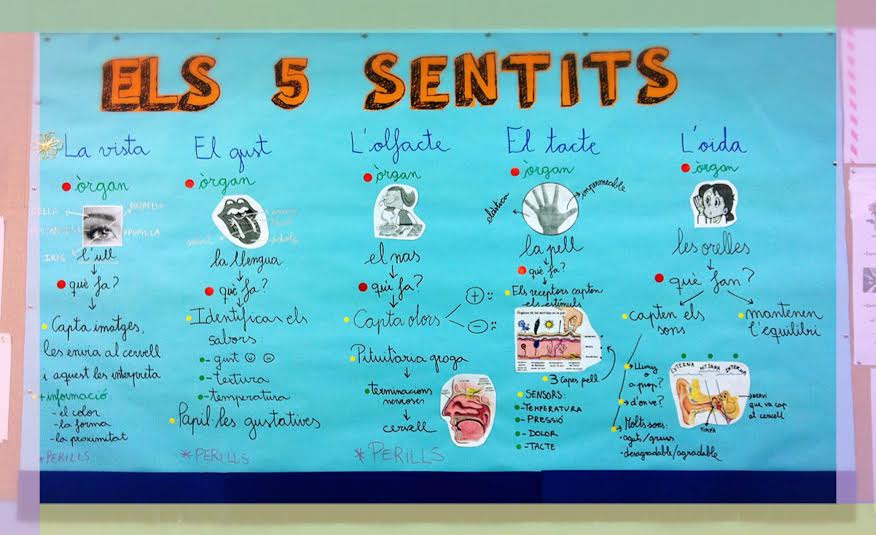 ELS 5 SENTITS
La vista
òrgan
CELLA
PUPIL·LA
IRIS
l'ull
què fa?
Capta imatges,
les envia al cervell
i aquest les interpreta
+informació
- el color
- la forma
- la proximitat
* PERILLS
El gust
òrgan
la llengua
què fa?
Identifica els
sabors
- gust
- textura
- temperatura
Papil·les gustatives
* PERILLS
L'olfacte
òrgan
el nas
què fa?
Capta olors
+
-
Pituitària groga
terminacions
nervioses
cervell
* PERILLS
El tacte
òrgan
elàstica
impermeable
la pell
què fa?
Els receptors capten
els estímuls
3 capes pell
SENSORS:
- TEMPERATURA
- PRESSIÓ
- DOLOR
- TACTE
L'oïda
òrgan
les orelles
què fan?
capten els
sons
mantenen
l'equilibri
Lluny
o
a prop?
d'on ve?
Molts sons:
agut/greus
desagradable/agradable
EXTERNA MITJANA INTERNA
NERVI
que va cap
al cervell
TIMPÀ